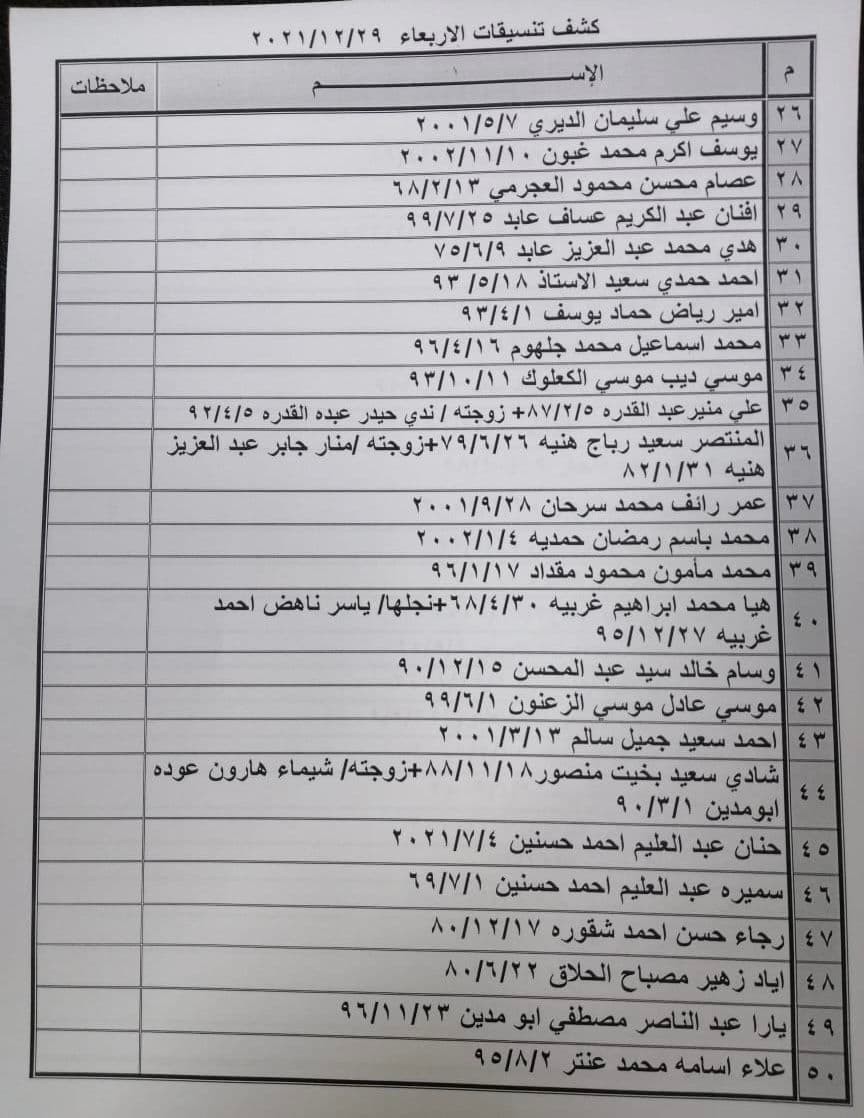 كشف تنسيقات الاربعاء ٢٠٢١/١٢/٢٩
م الإســـم ملاحظات
٢٦ وسيم علي سليمان الديري ٢٠٠١/٥/٧
٢٧ يوسف اكرم محمد غبون ٢٠٠٢/١١/١٠
٢٨ عصام محسن محمود العجرمي ٦٨/٢/١٣
٢٩ افنان عبد الكريم عساف عابد ٩٩/٧/٢٥
٣٠ هدي محمد عبد العزيز عابد ٧٥/٦/٩
٣١ احمد حمدي سعيد الاستاذ ٩٣/٥/١٨
٣٢ امير رياض حماد يوسف ٩٣/٤/١
٣٣ محمد اسماعيل محمد جلهوم ٩٦/٤/١٦
٣٤ موسي ديب موسي الكعلوك ٩٣/١٠/١١
٣٥ علي منيرعبد القدره ٨٧/٢/٥+ زوجته / ندي حيدر عبده القدره ٩٢/٤/٥
٣٦ المنتصر سعيد رباح هنيه ٧٩/٦/٢٦+زوجته /منار جابر عبد العزيز
هنيه ٨٢/١/٣١
٣٧ عمر رائف محمد سرحان ٢٠٠١/٩/٢٨
٣٨ محمد باسم رمضان حمديه ٢٠٠٢/١/٤
٣٩ محمد مأمون محمود مقداد ٩٦/١/١٧
٤٠ هيا محمد ابراهيم غربيه ٦٨/٤/٣٠+نجلها/ ياسر ناهض احمد
غربيه ٩٥/١٢/٢٧
٤١ وسام خالد سيد عبد المحسن ٩٠/١٢/١٥
٤٢ موسي عادل موسي الزعنون ٩٩/٦/١
٤٣ احمد سعيد جميل سالم ٢٠٠١/٣/١٣
٤٤ شادي سعيد بخيت منصور٨٨/١١/١٨+زوجته/ شيماء هارون عوده
ابومدين ٩٠/٣/١
٤٥ حنان عبد العليم احمد حسنين ٢٠٢١/٧/٤
٤٦ سميره عبد العليم احمد حسنين ٦٩/٧/١
٤٧ رجاء حسن احمد شقوره ٨٠/١٢/١٧
٤٨ اياد زهير مصباح الحلاق ٨٠/٦/٢٢
٤٩ يارا عبد الناصر مصطفي ابو مدين ٩٦/١١/٢٣
٥٠ علاء اسامه محمد عنتر ٩٥/٨/٢